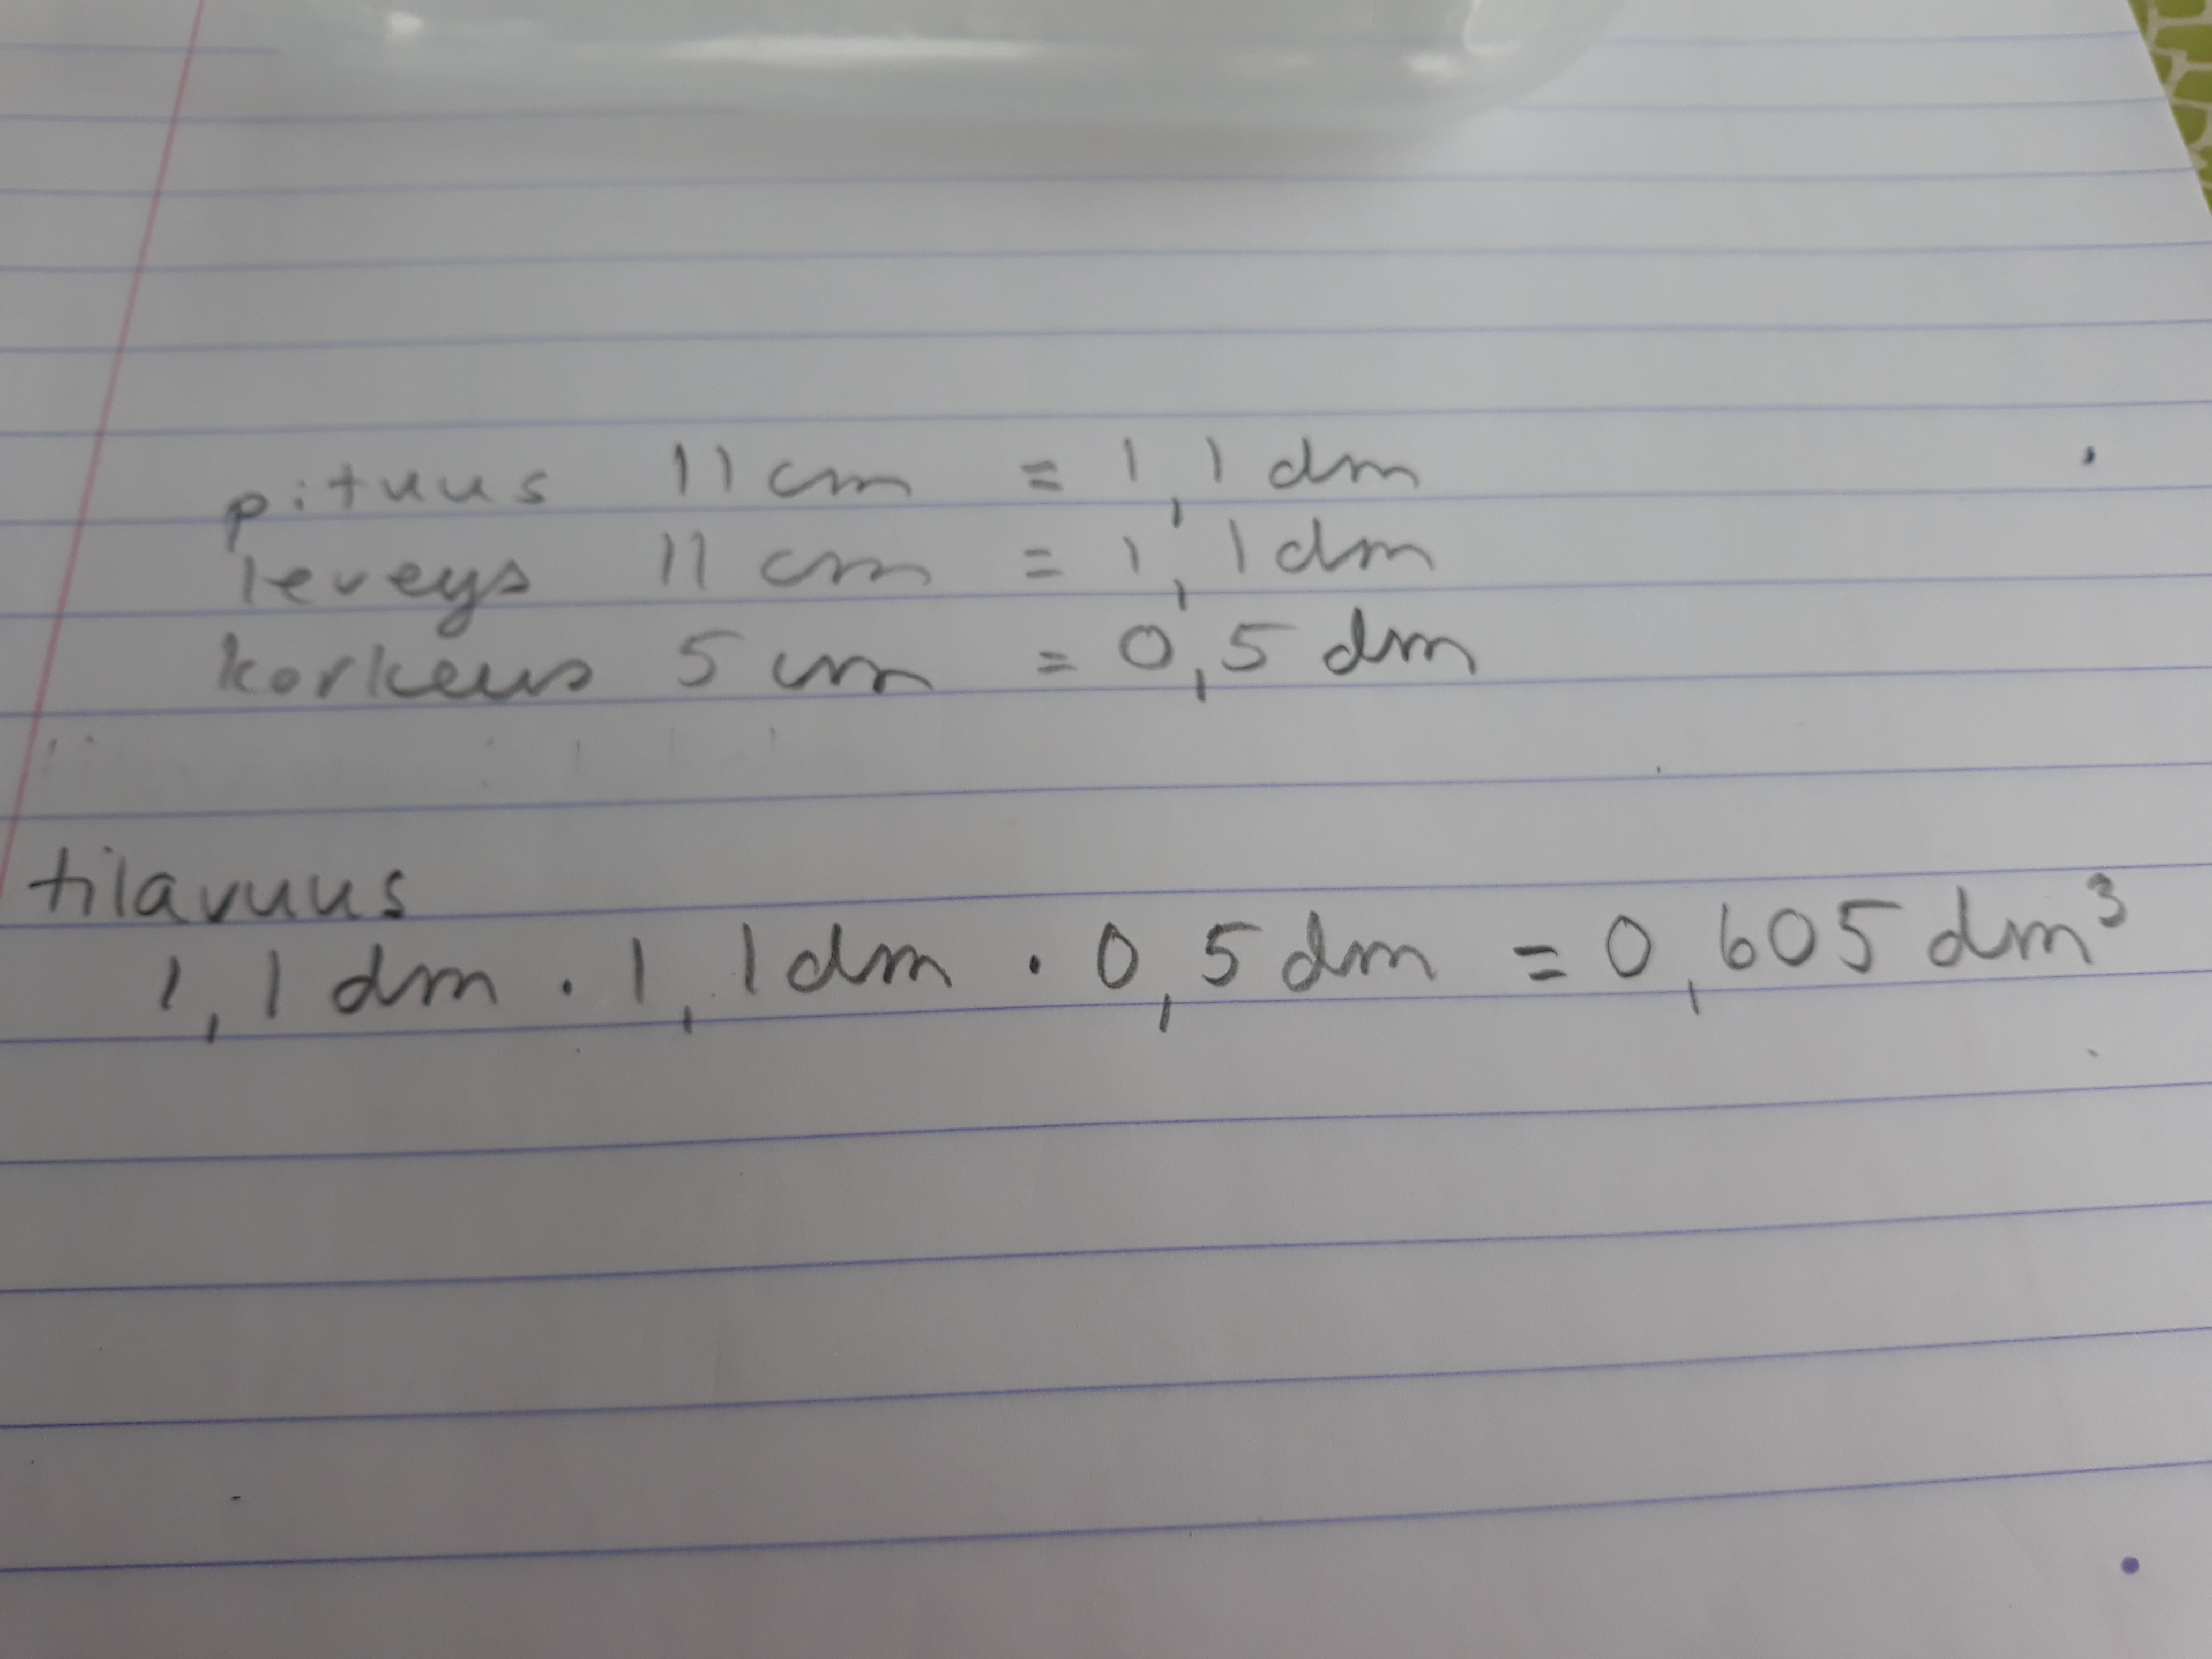 pituus 11 cm = 1,1 dm
leveys 11 cm = 1,1 dm
korkeus 5 cm = 0,5 dm
tilavuus
1,1 dm · 1,1 dm · 0,5 dm = 0,605 dm³